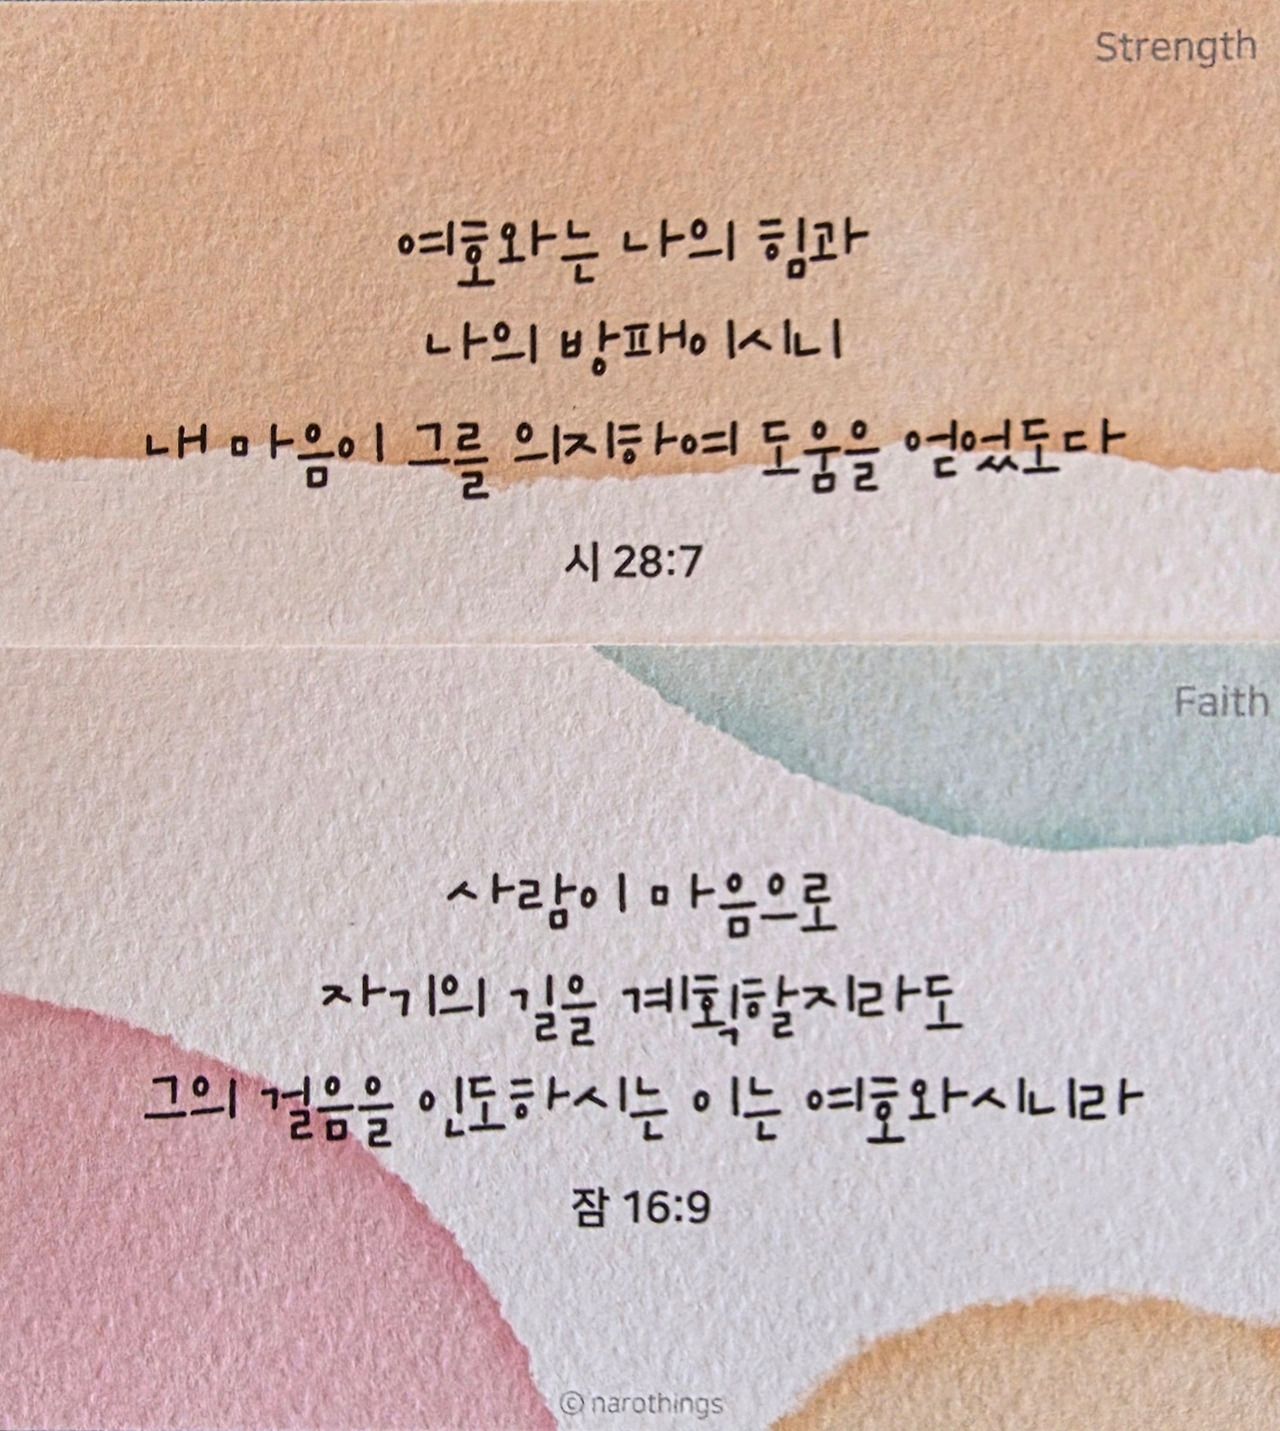 Strength
여호와는 나의 힘과
나의 방패이시니
내 마음이 그를 의지하여 도움을 얻었도다
시 28:7
Faith
사람이 마음으로
자기의 길을 계획할지라도
그의 걸음을 인도하시는 이는 여호와시니라
잠 16:9
© narothings